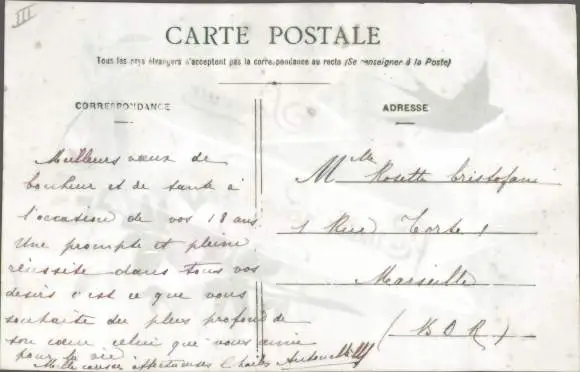 III
CARTE POSTALE
Tous les pays étrangers n'acceptent pas la correspondance au recto (Se renseigner à la Poste)
CORRESPONDANCE
ADRESSE
Meilleurs vœux de
bonheur et de santé à
l'occasion de vos 18 ans.
Une prompte et pleine
réussite dans tous vos
désirs c'est ce que vous
souhaite du plus profond de
son cœur celui que vous aime
pour la vie
Mille caresses affectueuses Charles
Mlle Rosette Cristofani
1 Rue Torte 1
Marseille
(B D R)